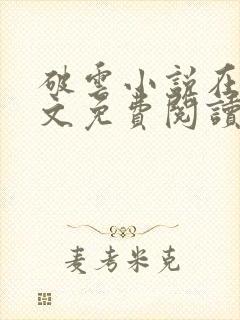 破雲小説在
文免費閱讀
麦考米克